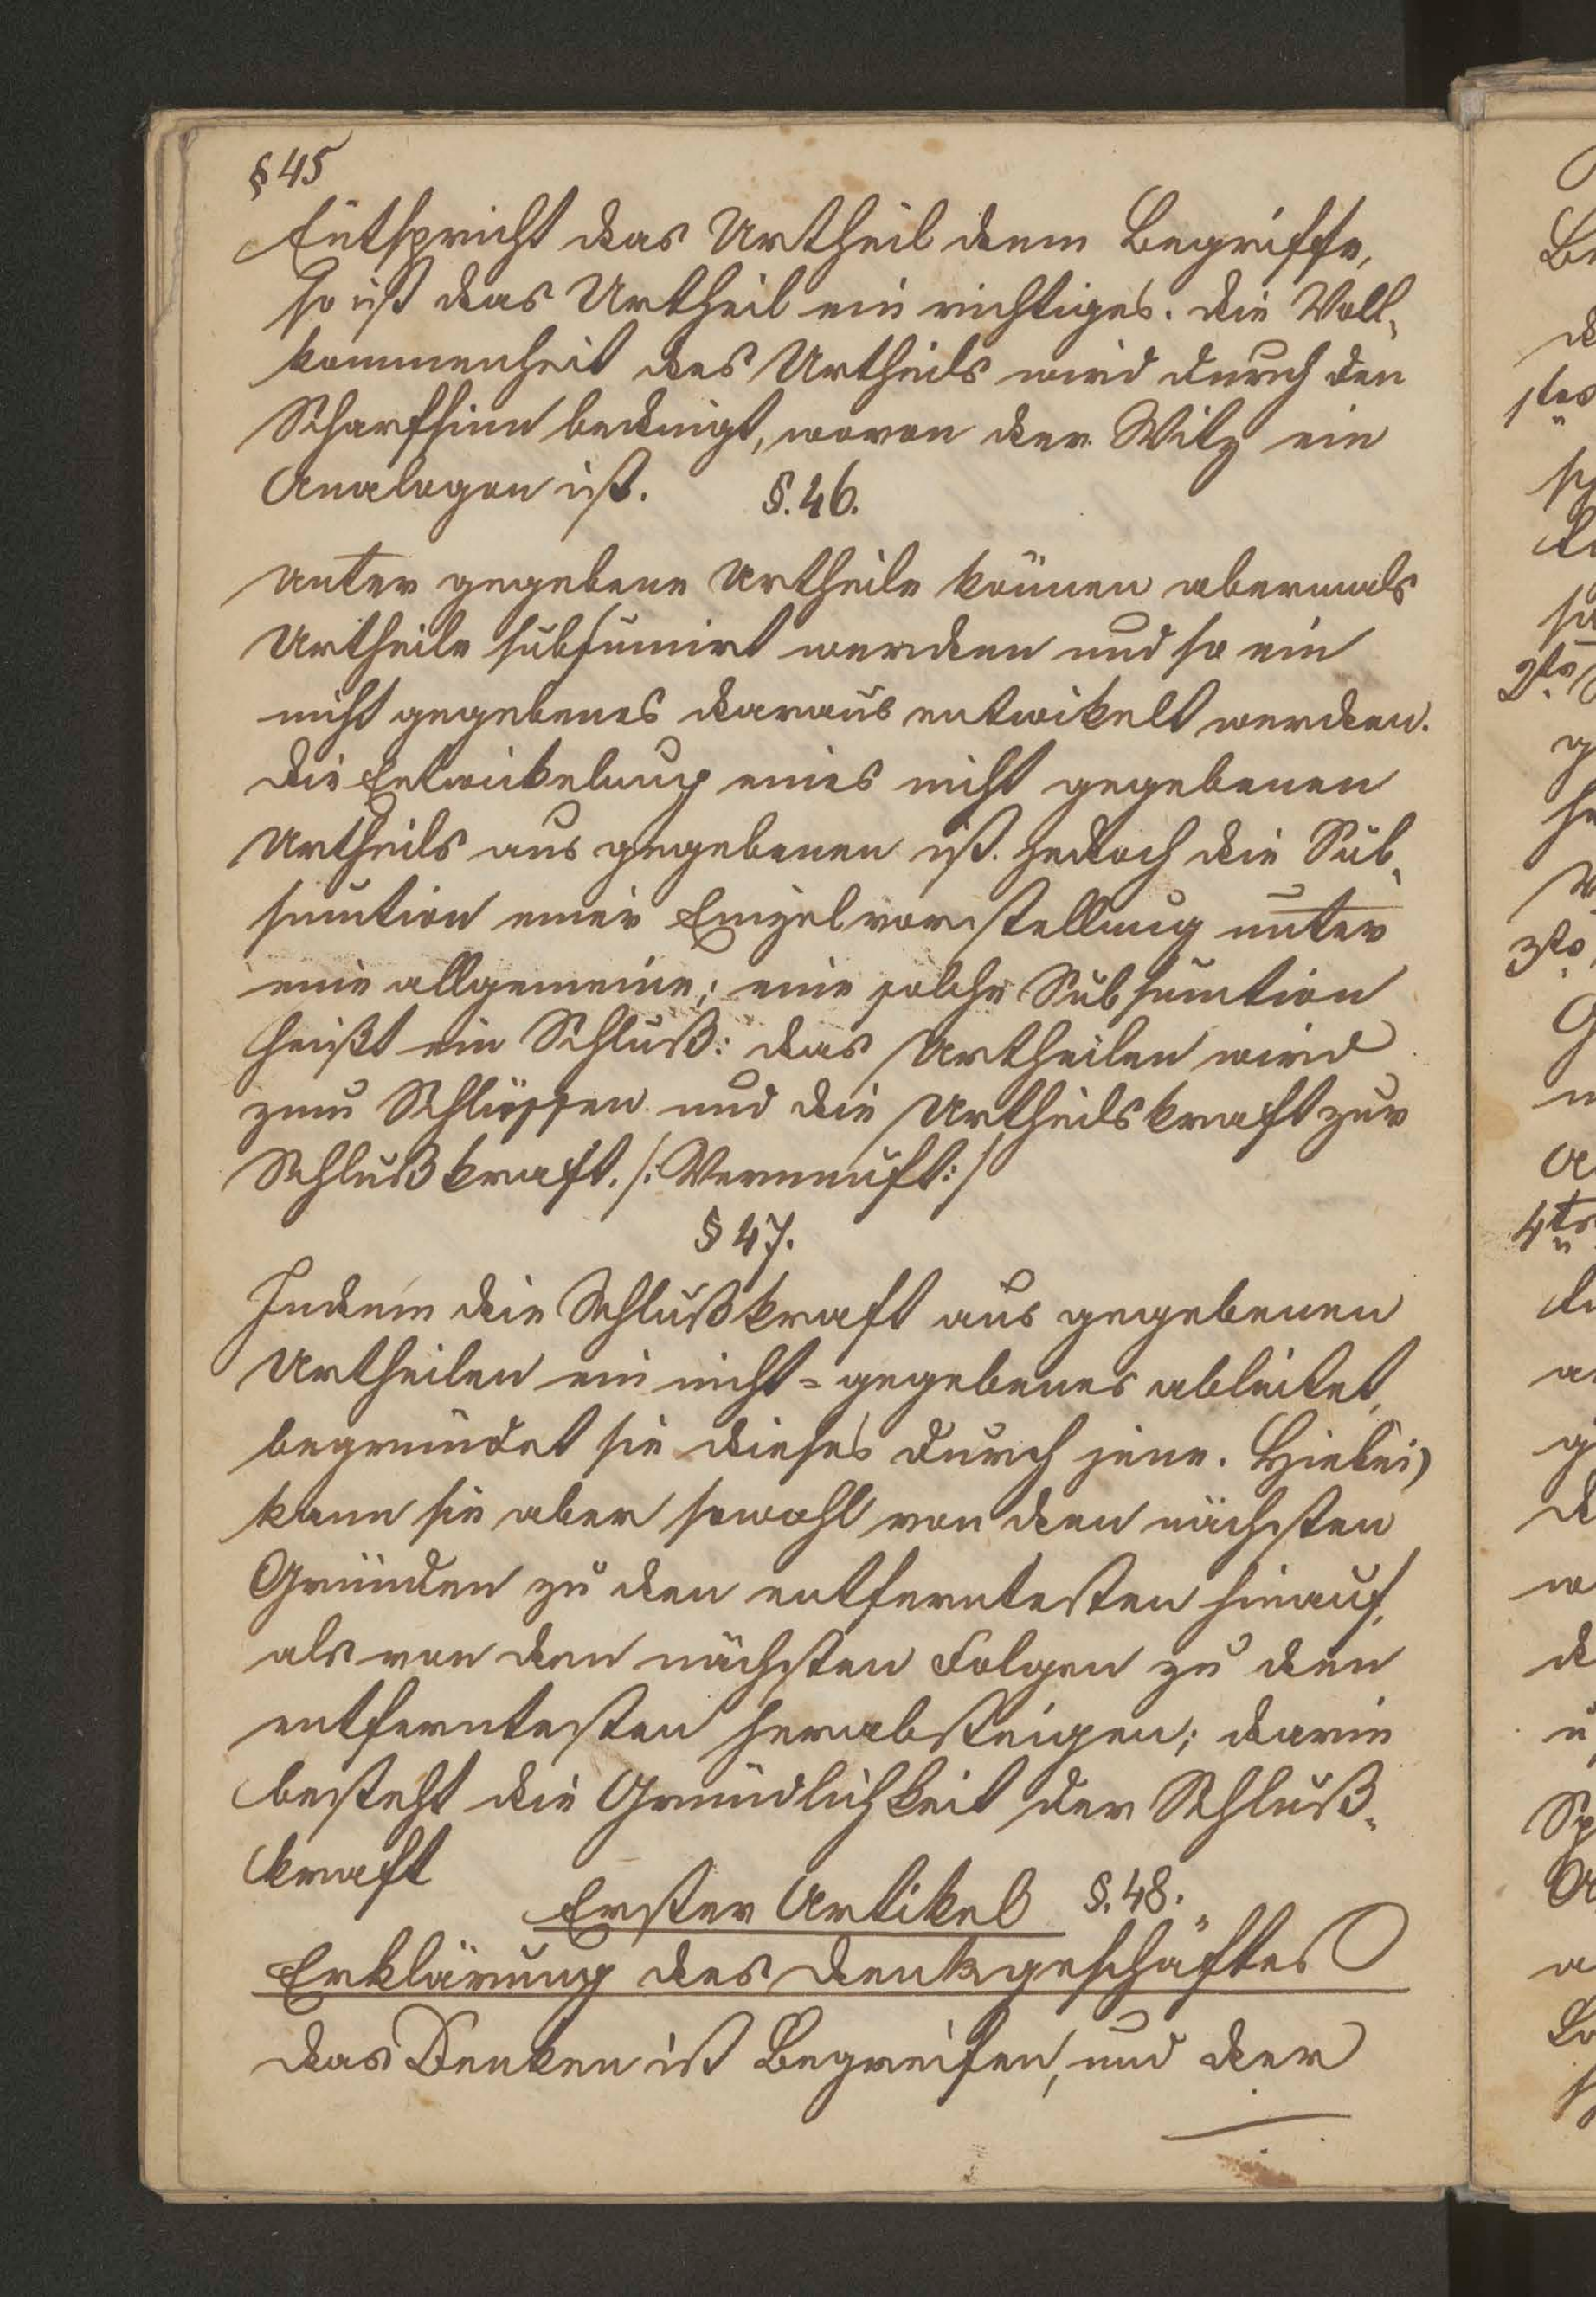 § 45
Entspricht das Urtheil dem Begriffe,
so ist das Urtheil ein richtiges. Die Voll-
kommenheit des Urtheils wird durch den
Scharfsinn bedingt, wovon der Witz ein
Analogon ist. §. 46.
Unter gegebene Urtheile können abermals
Urtheile subsumirt werden und so ein
nicht gegebenes daraus entwikelt werden.
Die Entwickelung eines nicht gegebenen
Urtheils aus gegebenen ist jedoch die Sub-
sumtion einer Einzelvorstellung unter
eine allgemeine; eine solche Subsumtion
heißt ein Schluß: das Urtheilen wird
zum Schlüssen und die Urtheilskraft zur
Schlußkraft. /: Vernunft :/
§ 47.
Indem die Schlußkraft aus gegebenen
Urtheilen ein nicht=gegebenes ableitet,
begründet sie dieses durch jene. Hiebei
kann sie aber sowohl von den nächsten
Gründen zu den entferntesten hinauf,
als von den nächsten Folgen zu den
entferntesten herabsteigen; darin
besteht die Gründlichkeit der Schluß-
kraft
Erster Artikel §. 48.
Erklärung des Denkgeschäftes
Das Denken ist Begreifen, und der